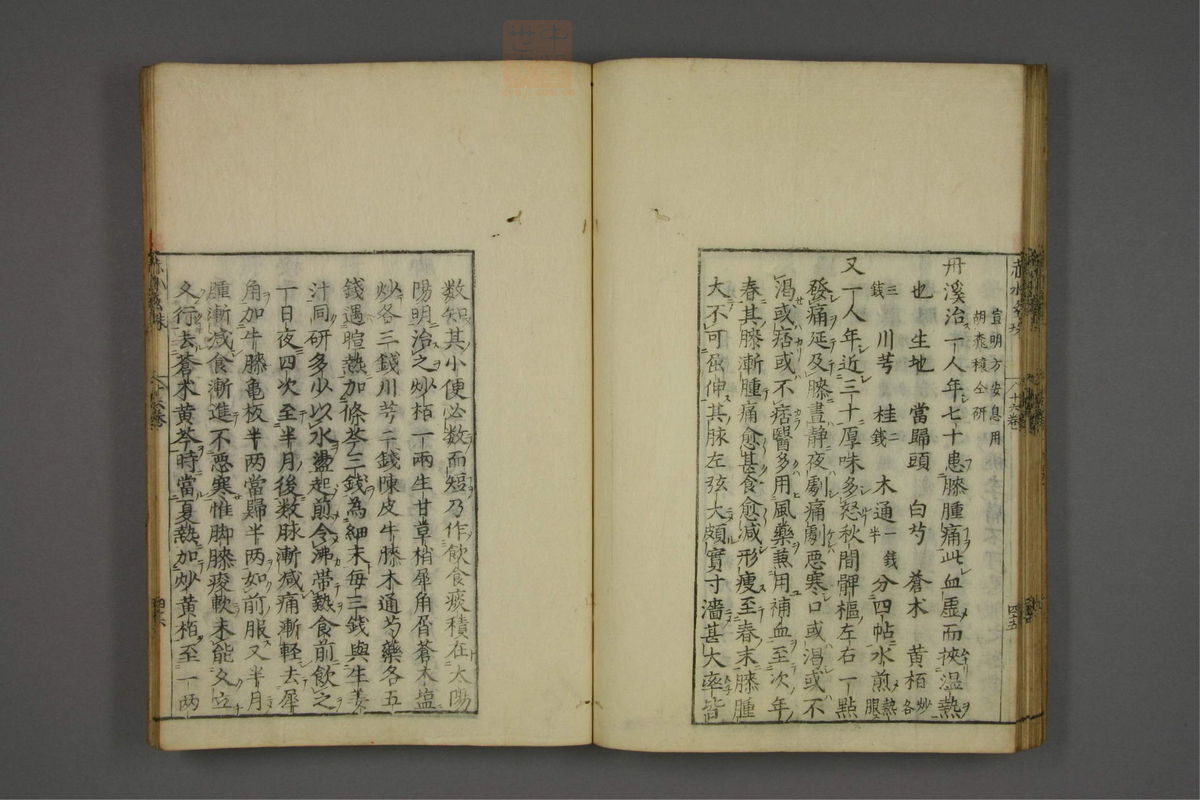 宣明方安息用
胡桃核仝研
丹溪治一人年七十患膝腫痛此血虚而挾温熱
也 生地 當歸頭 白芍 蒼朮 黄栢炒各
三錢 川芎 桂二錢 木通一錢半 分四帖水煎熱服
又一人年近三十厚味多怒秋間髀樞左右一點
發痛延及膝晝静夜劇痛劇悪寒口或渇或不
渇或痞或不痞醫多用風藥兼用補血至次年
春其膝漸腫痛愈甚食愈減形瘦至春末膝腫
大不可屈伸其脉左弦大頗實寸濇甚大率皆
数知其小便必数而短乃作飲食痰積在太陽
陽明治之炒栢一兩生甘草梢犀角屑蒼木塩
炒各三錢川芎二錢陳皮牛膝木通芍藥各五
錢遇暄熱加條芩三錢為細末毎三錢與生姜
汁同研多少以水盪起煎令沸帯熱食前飲之
一日夜四次至半月後数脉漸減痛漸軽去犀
角加牛膝亀板半两當歸半两如前服又半月
腫漸减食漸進不悪寒惟脚膝痠軟未能久立
久行去蒼朮黄芩時當夏熱加炒黄栢至一两